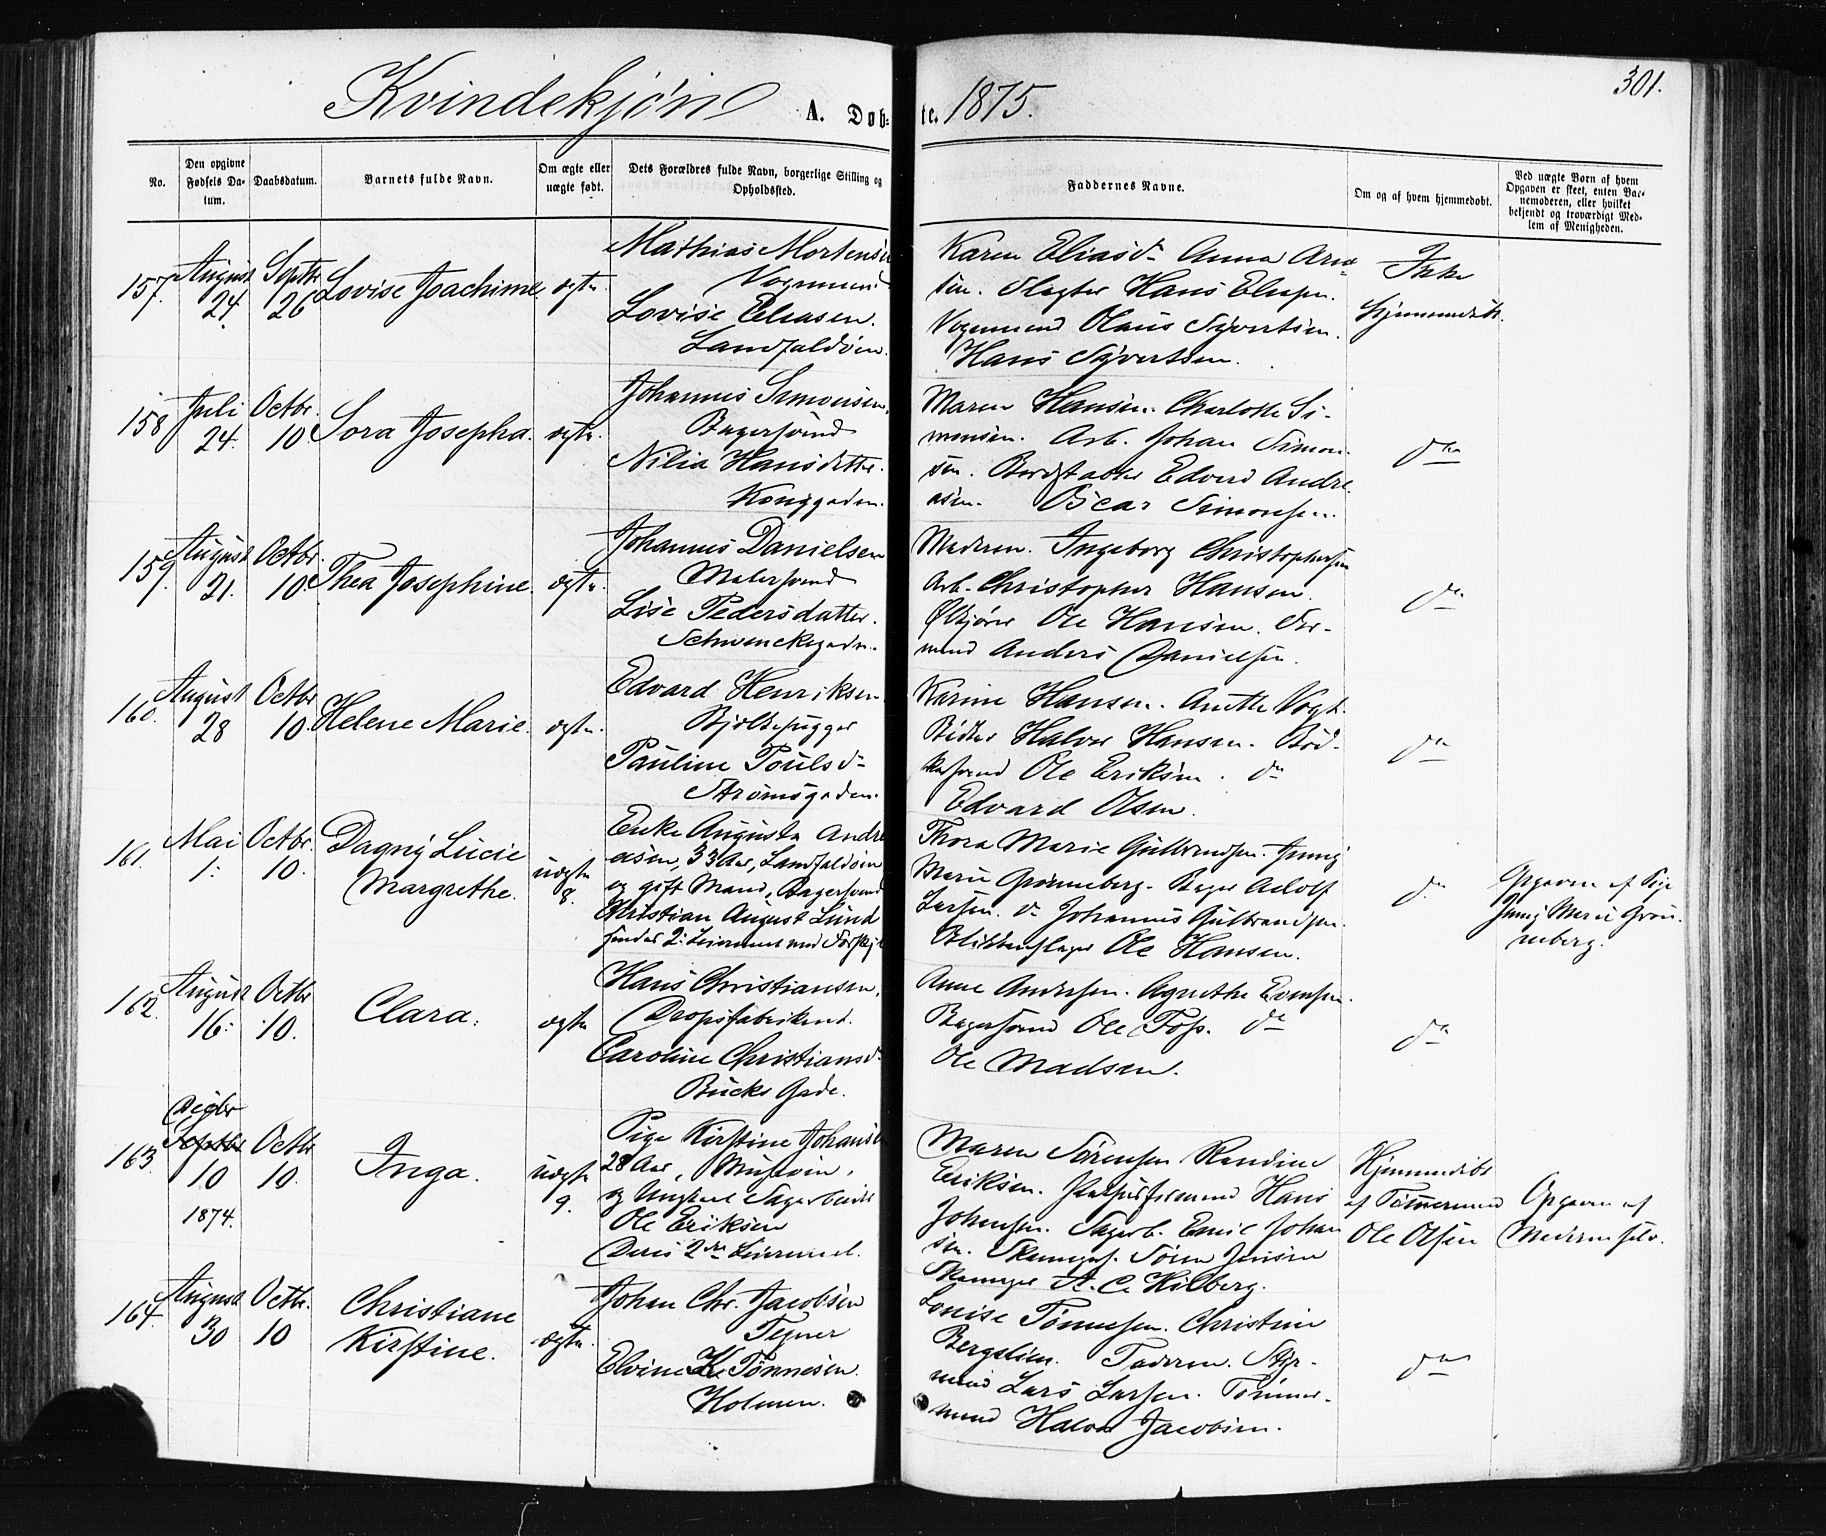 301.
Kvindekjøn A. Døb= te. 1875.
No.
Den opgivne Fødsels Datum.
Daabsdatum.
Barnets fulde Navn.
Om ægte eller uægte født.
Dets Forældres fulde Navn, borgerlige Stilling og Opholdssted.
Faddernes Navne.
Om og af hvem hjemmedøbt.
Ved uægte Børn af hvem Opgaven er skeet, enten Barnemoderen, eller hvilket bekjendt og troværdigt Medlem af Menigheden.
157. August 24. Septbr 26 Lovise Joachime. ægte.
Mathias Mortensen
Vognmand
Lovise Eliasen.
Landfaldøen.
Karen Eliasd. Anna Arn=
sen. Slagter Hans Eliasen.
Vognmand Olaus Syvertsen.
Hans Syvertsen.
Ikke
hjemmedøbt.
158 Juli 24. Octbr. 10. Sora Josepha. ægte.
Johannes Simonsen.
Bagersvend
Nilia Hansdatter.
Konggaden.
Maren Hansen. Charlotte Si-
monsen. Arb. Johan Simon-
sen. Edvard Andre-
asen. Oscar Simonsen.
do
159. August 21. Octbr. 10. Thea Josephine. ægte.
Johannes Danielsen
Malersvend
Lise Pedersdatter.
Schwenckegaden.
Moderen. Ingeborg Christophersen
Arb. Christopher Hansen.
Ølkjører Ole Hansen. For-
mand Anders Danielsen.
do
160. August 28 Octbr 10. Helene Marie. ægte.
Edvard Henriksen.
Bjelkehugger
Pauline Poulsd.
Strømsgaden.
Karine Hansen. Anette Vogt.
Bødker Halvor Hansen. Bød-
kersvend Ole Eriksen. do
Edvard Olsen.
do
161. Mai 1. Octbr. 10. Dagny Lucie
Margrethe. uægte 8.
Enke Augusta Andre
asen, 33 Aar, Landfaldøen
og gift Mand, Bagersvend
Christian August Lund
hendes 2. Leiermaal med Forskjel
Thora Marie Gulbrandsen. Jenny
Marie Grønneberg. Bager Adolf
Larsen. do Johannes Gulbrandsen.
Blikkenslager Ole Hansen.
do
Opgaven af Pige
Jenny Marie Grøn-
neberg.
162. August 16. Octbr 10. Clara. ægte
Hans Christiansen.
Dropsfabrikant.
Caroline Christiansd.
Bucks Gade.
Anne Andersen. Agnethe Evensen.
Bagersvend Ole Foss. do
Ole Madsen.
do
163. Decbr Septbr 10 1874. Octbr 10. Inga. uægte 9.
Pige Kirstine Johansen
28 Aar, Musøen,
og Ungkarl Sagarbeider
Ole Eriksen
Deres 2de Leiermaal.
Maren Sørensen Randine
Eriksen. Hans
Johansen. Sagarb. Emil Johan
sen. Søren Jensen
A. C. Hilberg.
Hjemmedøbt
af Tømmermand
Ole Olsen
Opgaven af
Moderen selv.
164. August 30 Octbr. 10 Christiane
Kirstine. ægte.
Johan Chr. Jacobsen
Tegner
Elvine K. Tønnesen.
Holmen.
Louise Tønnesen. Christine
Bergslien. Faderen. Styr-
mand Lars Larsen. Tømmer-
mand Halvor Jacobsen.
do